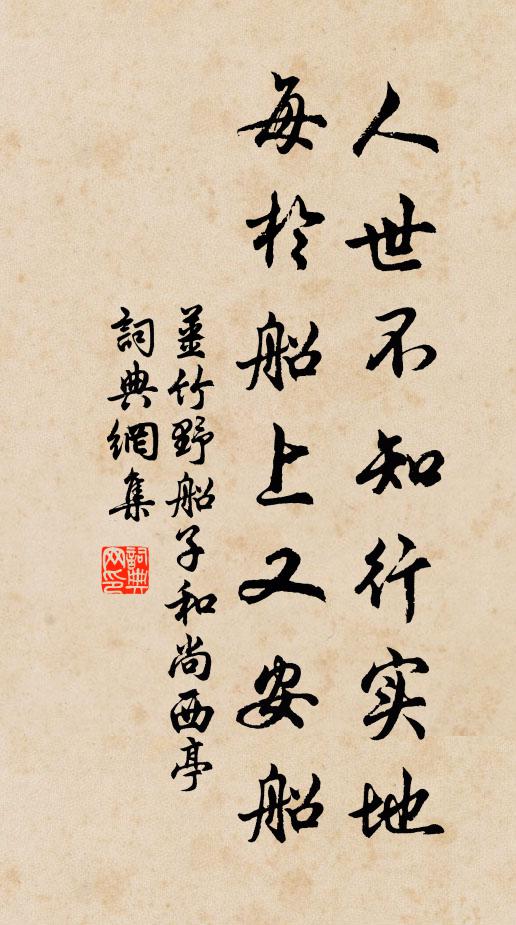 人世不知行实地
每於船上又安船
姜竹野船子和尚西亭
詞典網集
詞典网印